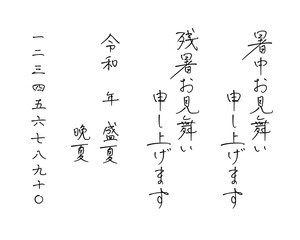 暑中お見舞い
申し上げます
残暑お見舞い
申し上げます
令和 年 盛夏
晩夏
一二三四五六七八九十〇